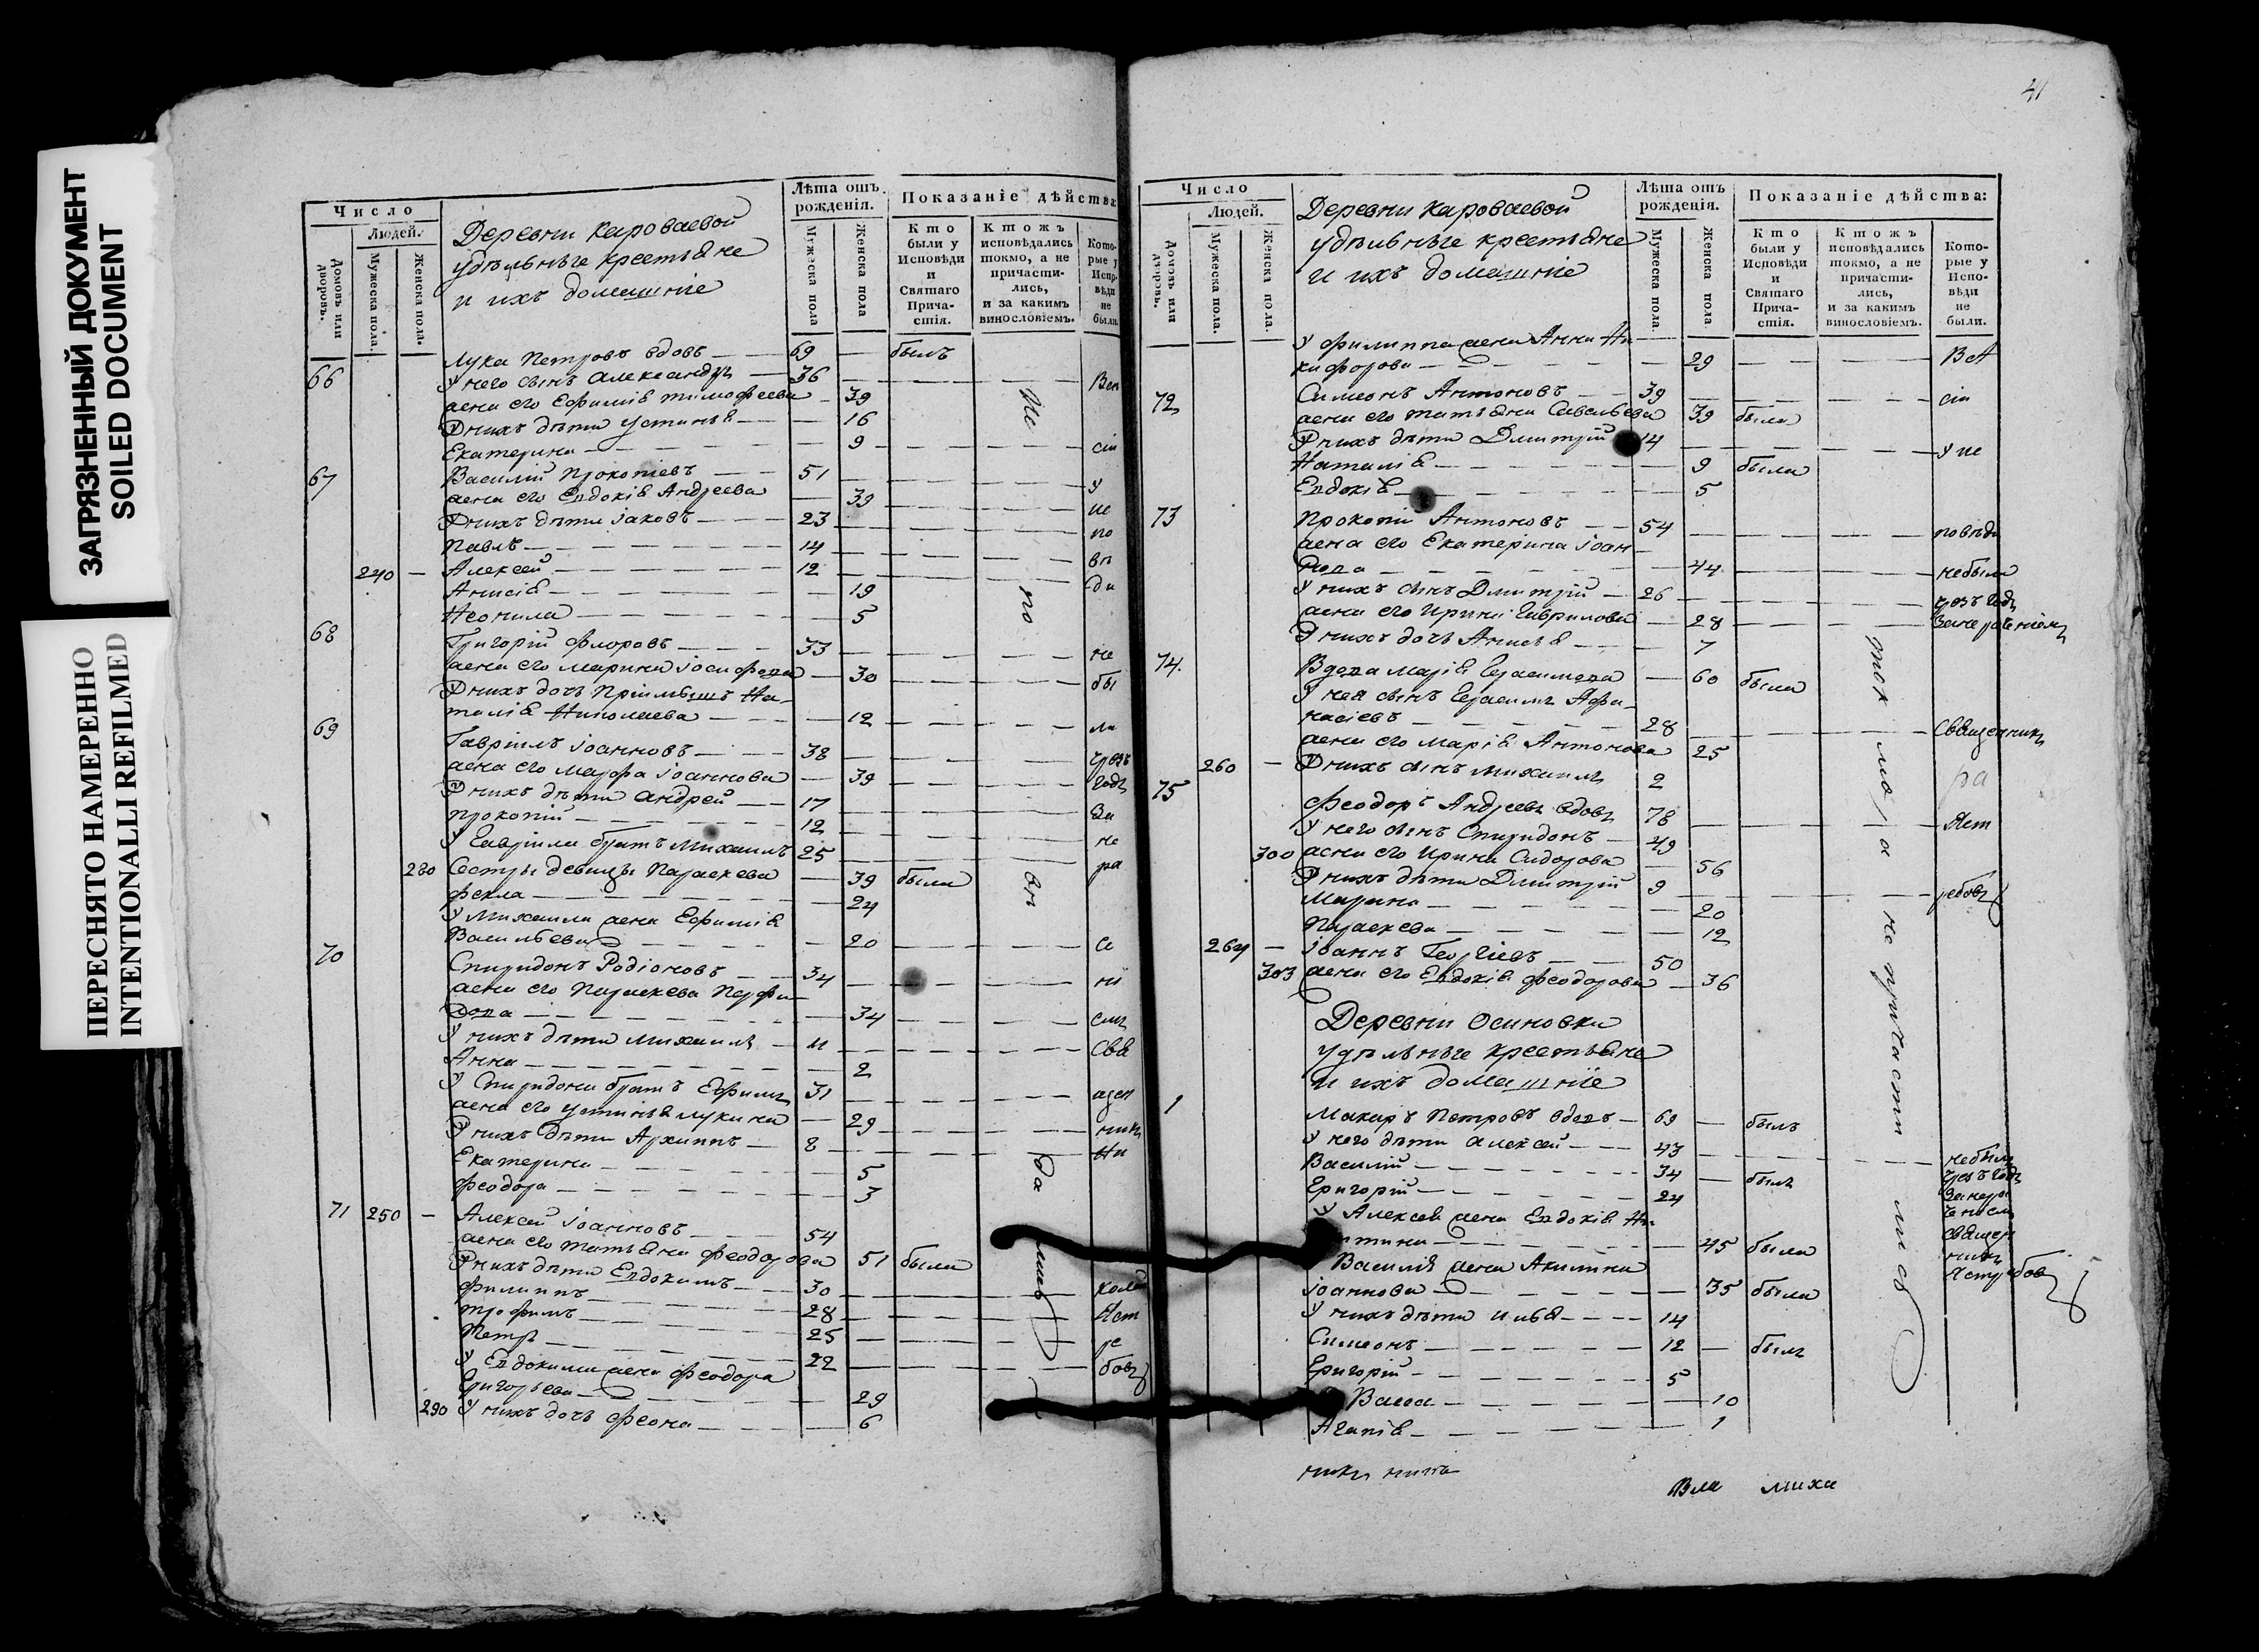 ЗАГРЯЗНЕННЫЙ ДОКУМЕНТ
SOILED DOCUMENT
ПЕРЕСНЯТО НАМЕРЕННО
INTENTIONALLI REFILMED
Число
Людей.
Домовъ или дворовъ.
Мужеска пола.
Женска пола.
Деревни Кароваевой
удѣльныѣ крестьяне
и ихъ домашніе
Лѣта отъ рожденія.
Мужеска пола
Женска пола
Показаніе дѣйства:
Кто были у Исповѣди и Святаго Причастія.
Ктожъ исповѣдались токмо, а не причастились, и за какимъ винословіемъ.
Которые у Исповѣди не были.
66 Лука Петровъ вдовъ 69 — былъ
У него сынъ Александръ 36
жена его Ефимія Тимофеева 39
У нихъ дѣти Устинья 16
Екатерина 9
67 Василій Прокопіевъ 51
жена его Евдокія Андреева 39
У нихъ дѣти Іаковъ 23
Павлъ 14
240 — Алексей 12
Анисія 19
Неонила 5
68 Григорій Флоровъ 33
жена его Марина Іосифова 30
У нихъ дочь пріимышъ На-
талія Николаева 12
69 Гавріилъ Іоанновъ 38
жена его Марфа Іоаннова 39
У нихъ дѣти Андрей 17
Прокопій 12
У Гавріила братъ Михаилъ 25
280 Сестры девицы Параскева 39 были
Фекла 24
У Михаила жена Ефимія
Васильева 20
70 Спиридонъ Родіоновъ 34
жена его Параскева Перфи-
лова 34
У нихъ дѣти Михаилъ 11
Анна 2
У Спиридона братъ Ефимъ 31
жена его Устинья Лукина 29
У нихъ дѣти Архиппъ 8
Екатерина 5
Феодора 3
71 250 — Алексей Іоанновъ 54
жена его Татьяна Феодорова 51 была
У нихъ дѣти Евдокимъ 30
Филиппъ 28
Трофимъ 25
Петръ 22
У Евдокима жена Феодора
Григорьева 29
290 У нихъ дочь Феона 6
41
Число
Людей.
Домовъ или дворовъ.
Мужеска пола.
Женска пола.
Деревни Кароваевой
удѣльныѣ крестьяне
и ихъ домашніе
Лѣта отъ рожденія.
Мужеска пола.
Женска пола
Показаніе дѣйства:
Кто были у Исповѣди и Святаго Причастія.
Ктожъ исповѣдались токмо, а не причастились, и за какимъ винословіемъ.
Которые у Исповѣди не были.
У Филиппа жена Анна Ни-
кифорова 29
72 Симеонъ Антоновъ 39
жена его Татьяна Савельева 39 была
У нихъ дѣти Димитрій 14
Наталія 9 была
Евдокія 5
73 Прокопій Антоновъ 54
жена его Екатерина Іоан-
44 небыли
У нихъ сынъ Димитрій 26
жена его Ирина Гаврилова 28
У нихъ дочь Анисья 7
74 Вдова Марія Герасимова 60 была
У нея сынъ Герасимъ Афа-
насіевъ 28 священникъ
жена его Марія Антонова 25
260 — У нихъ сынъ Михаилъ 2
75 Феодоръ Андреевъ вдовъ 78
У него сынъ Спиридонъ 49
300 жена его Ирина Сидорова 56
У нихъ дѣти Димитрій 9
Марина 20
Параскева 12
264 — Іоаннъ Георгіевъ 50
303 жена его Евдокія Феодорова 36
Деревни Осиновки
удѣльныѣ крестьяне
и ихъ домашніе
1 Макаръ Петровъ вдовъ 69 — былъ
У него дѣти Алексей 43
Василій 34 — былъ
Григорій 24
У Алексея жена Евдокія Ни-
китина 45 была
Василія жена Акилина
Іоаннова 35 была
У нихъ дѣти Илья 14
Симеонъ 12 — былъ
Григорій 5
Васса 10
Агапія 1